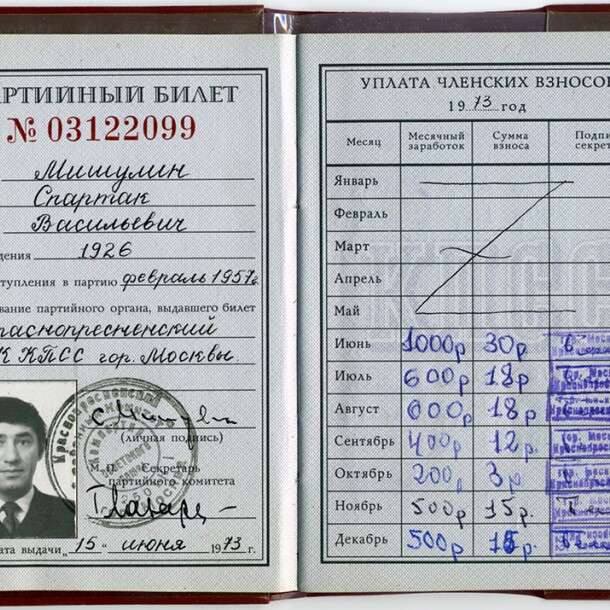 АРТИЙНЫЙ БИЛЕТ
№ 03122099
Мишулин
Спартак
Васильевич
дения 1926
ступления в партию февраль 1957г.
вание партийного органа, выдавшего билет
раснопресненский
К КПСС гор. Москвы.
(личная подпись)
М.П. Секретарь
партийного комитета
ата выдачи „15" июня 1973 г.
УПЛАТА ЧЛЕНСКИХ ВЗНОСО
1973 год
Месяц Месячный заработок Сумма взноса Подпи секрет
Январь
Февраль
Март
Апрель
Май
Июнь 1000р 30р.
Июль 600р 18р
Август 600р 18р
Сентябрь 400р 12р.
Октябрь 200р 3р
Ноябрь 500р 15р.
Декабрь 500р 15р.